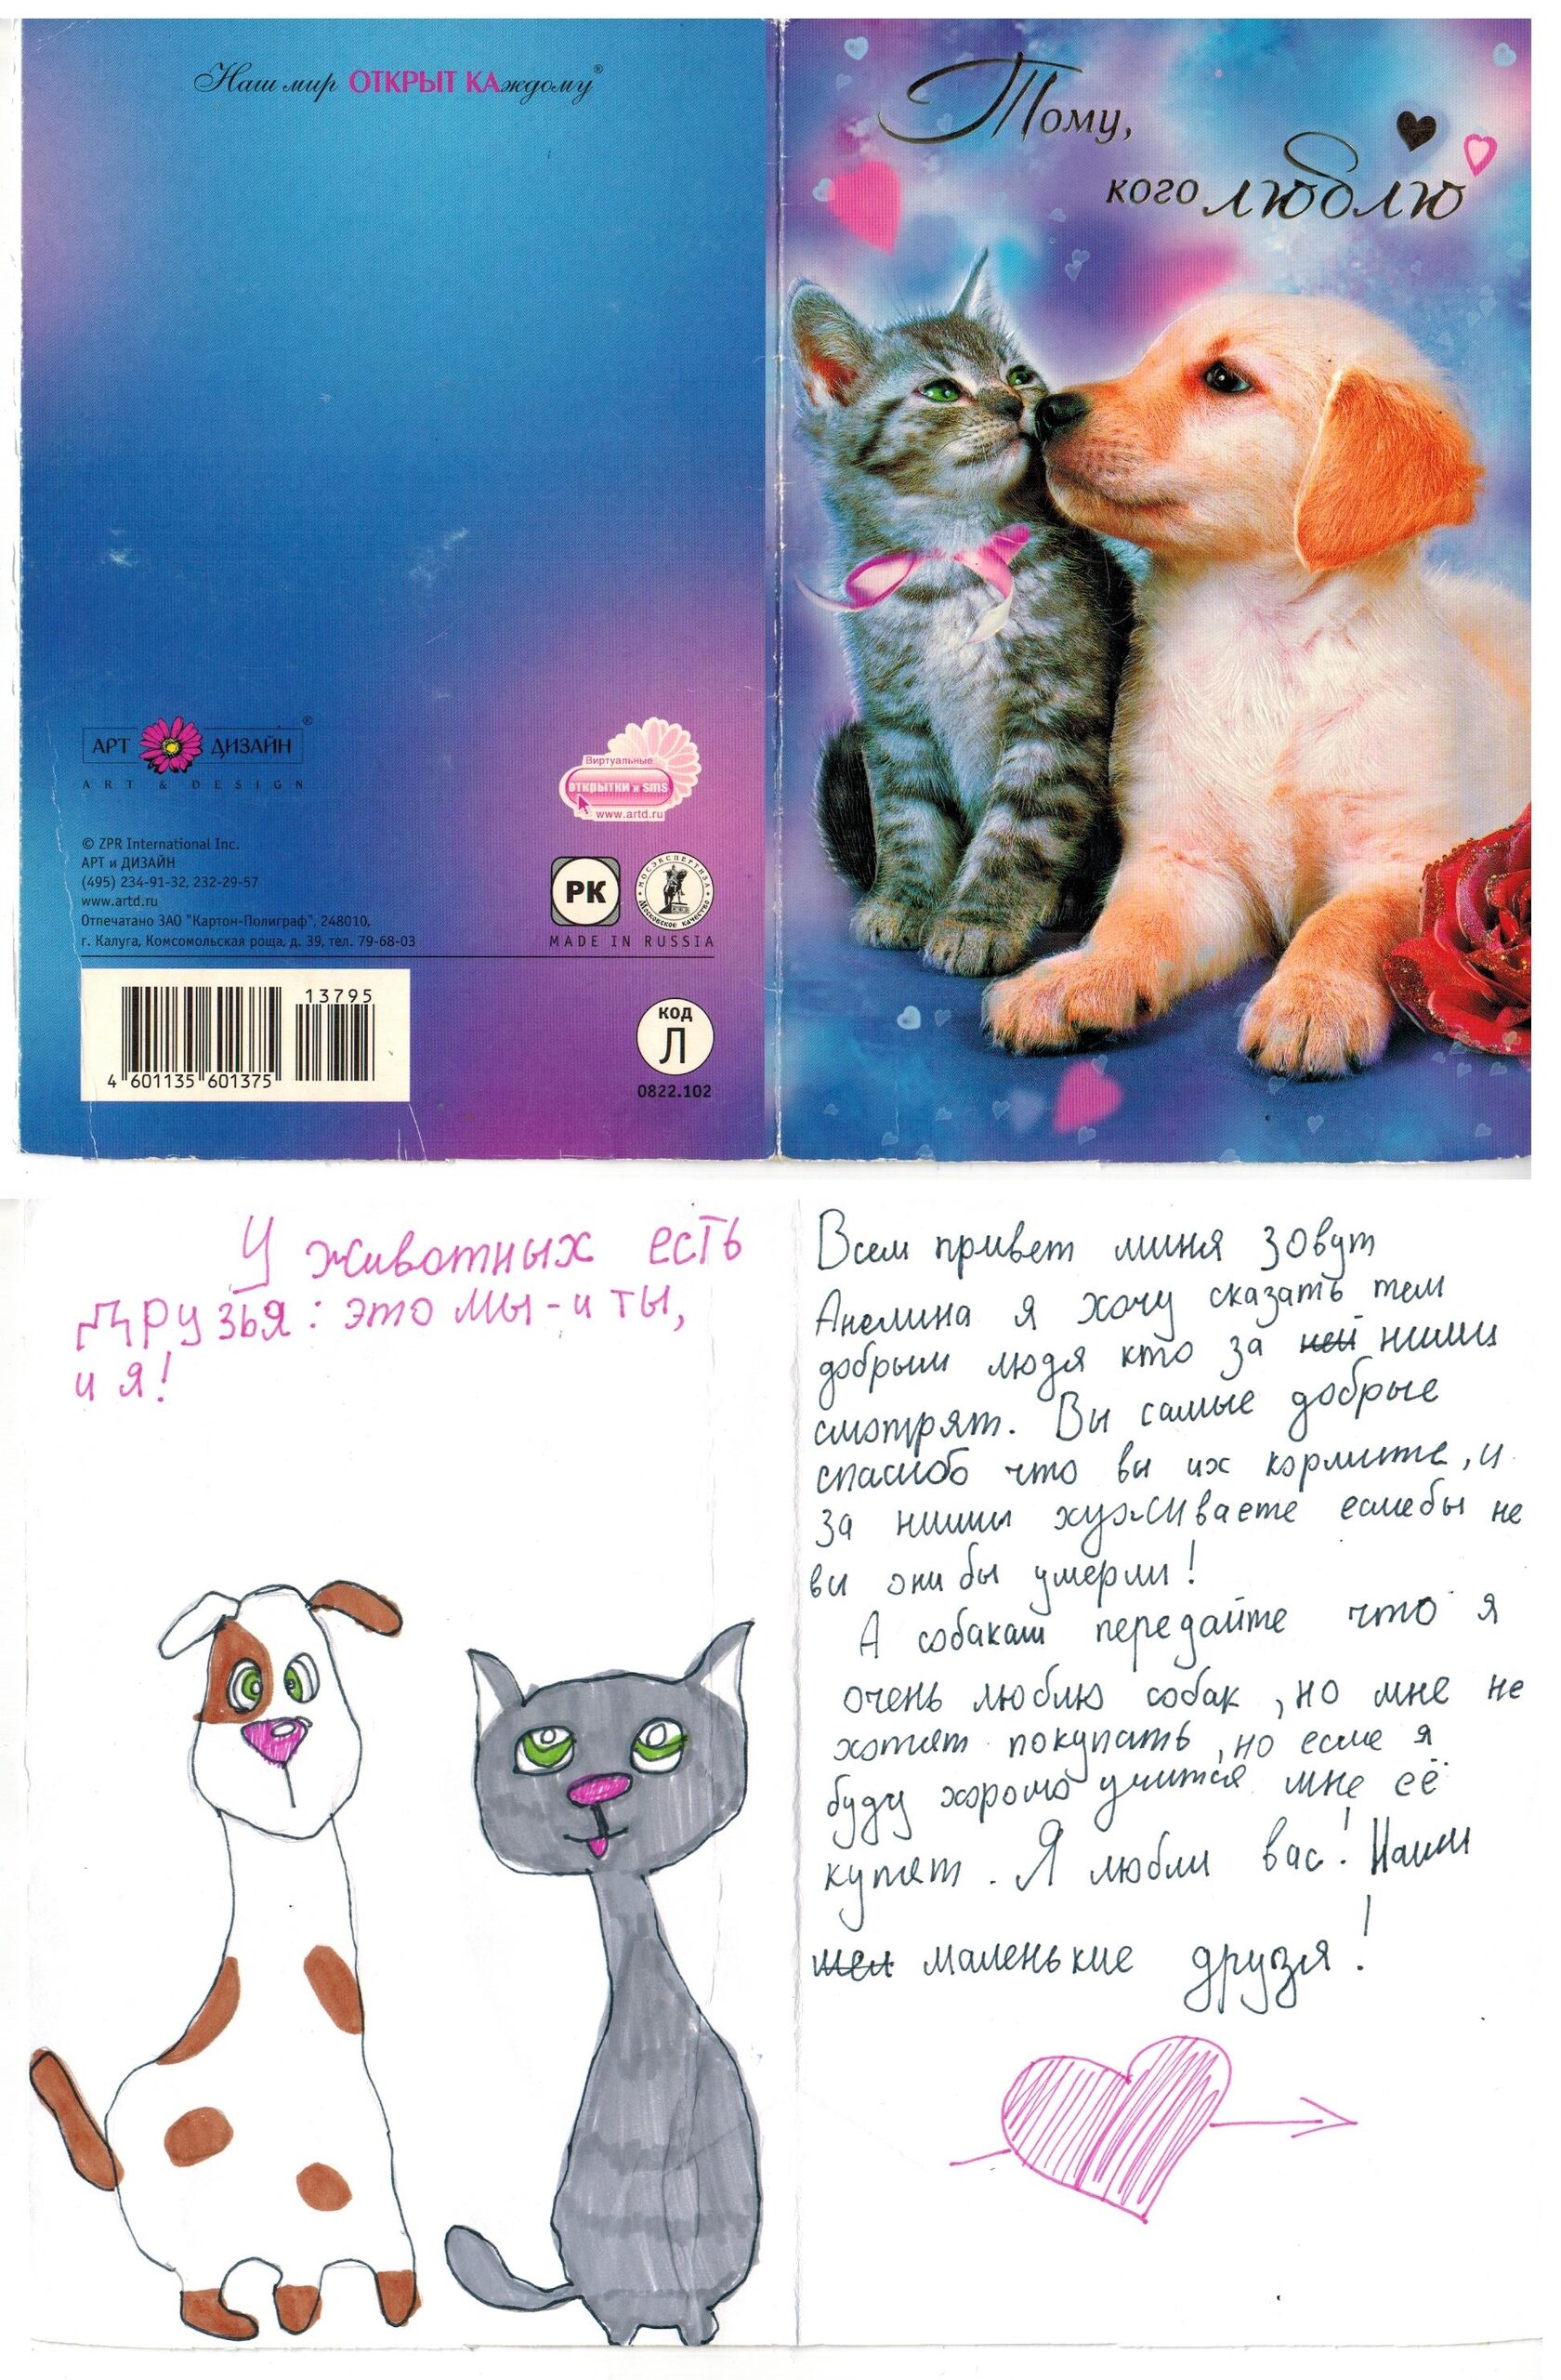 Наш мир ОТКРЫТ КАждому®
Тому,
кого люблю
АРТ ДИЗАЙН ®
ART & DESIGN
Виртуальные
открытки и sms
www.artd.ru
© ZPR International Inc.
АРТ и ДИЗАЙН
(495) 234-91-32, 232-29-57
www.artd.ru
Отпечатано ЗАО "Картон-Полиграф", 248010,
г. Калуга, Комсомольская роща, д. 39, тел. 79-68-03
РК
МОСЭКСПЕРТИЗА
Московское качество
MADE IN RUSSIA
13795
4 601135 601375
КОД
Л
0822.102
У животных есть
друзья: это мы-и ты,
и я!
Всем привет миня зовут
Анелина я хочу сказать тем
добрым людя кто за ней ними
смотрят. Вы самые добрые
спасибо что вы их кормите, и
за ними ухживаете еслебы не
вы они бы умерли!
А собакам передайте что я
очень люблю собак, но мне не
хотят покупать, но есле я
буду хорошо учится мне её
купят. Я люблю вас! Наши
маленькие друзья!